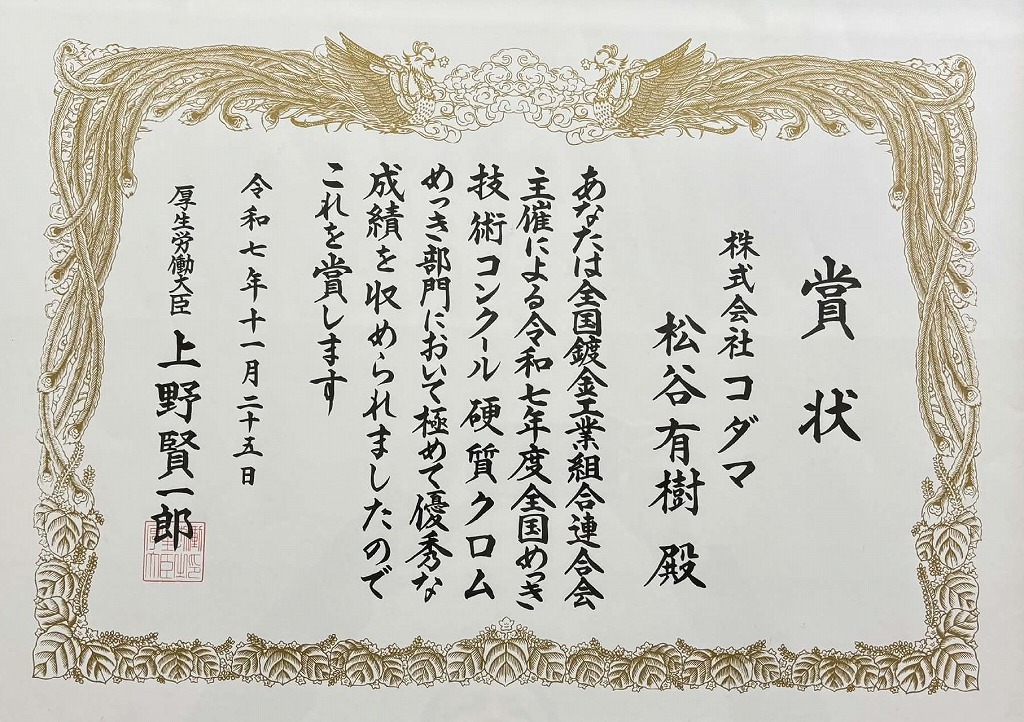 賞状
株式会社コダマ
松谷有樹 殿
あなたは全国鍍金工業組合連合会
主催による令和七年度全国めっき
技術コンクール硬質クロム
めっき部門において極めて優秀な
成績を収められましたので
これを賞します
令和七年十一月二十五日
厚生労働大臣 上野賢一郎